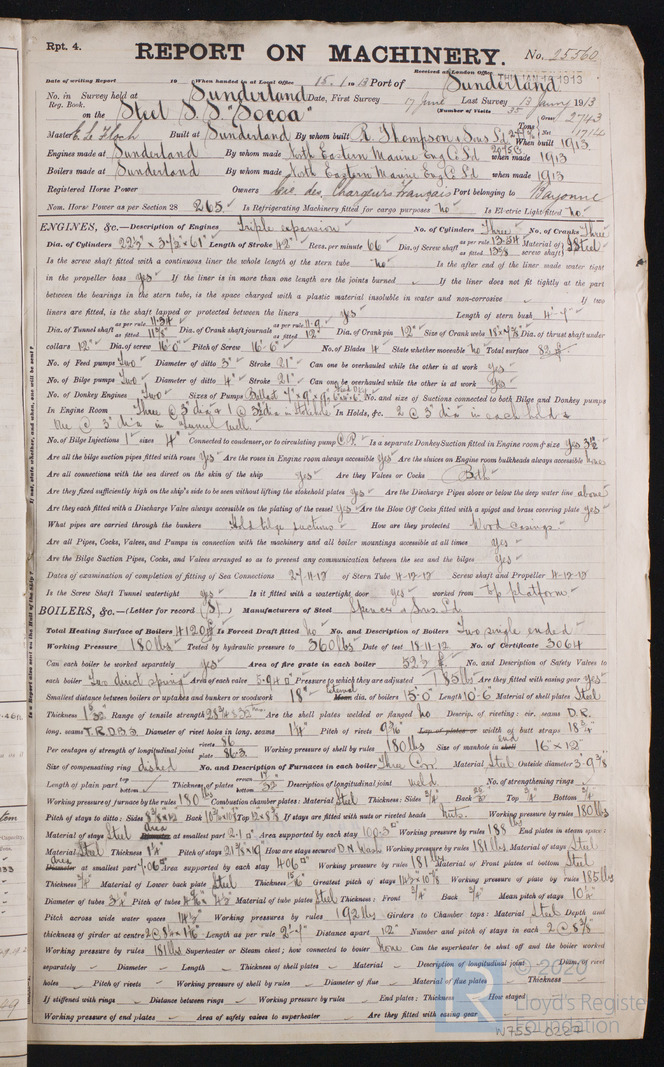 Rpt. 4.
REPORT ON MACHINERY.
No. 25560
Received at London Office THU. JAN. 16 1913
Date of writing Report 19 When handed in at Local Office 15.1.1913 Port of Sunderland
No. in Reg. Book. Survey held at Sunderland Date, First Survey 17 June Last Survey 13 January 1913
(Number of Visits 35
on the Steel S.S. "Socoa" Tons Gross 2743 Net 1712
Master E. Le Floch Built at Sunderland By whom built R. Thompson & Sons Ld When built 1913
Engines made at Sunderland By whom made North Eastern Marine Eng Co Ld when made 1913
Boilers made at Sunderland By whom made North Eastern Marine Eng Co Ld when made 1913
Registered Horse Power Owners Cie. des Chargeurs Français Port belonging to Bayonne
Nom. Horse Power as per Section 28 265 Is Refrigerating Machinery fitted for cargo purposes No Is Electric Light fitted No
ENGINES, &c.—Description of Engines Triple expansion No. of Cylinders Three No. of Cranks Three
Dia. of Cylinders Length of Stroke 42" Revs. per minute 66 Dia. of Screw shaft as per rule 13.34 as fitted Material of screw shaft Steel
Is the screw shaft fitted with a continuous liner the whole length of the stern tube No Is the after end of the liner made water tight
in the propeller boss yes If the liner is in more than one length are the joints burned If the liner does not fit tightly at the part
between the bearings in the stern tube, is the space charged with a plastic material insoluble in water and non-corrosive If two
liners are fitted, is the shaft lapped or protected between the liners yes Length of stern bush 4'-7"
Dia. of Tunnel shaft as per rule 11.34 as fitted Dia. of Crank shaft journals as per rule 11.9 as fitted 12" Dia. of Crank pin 12" Size of Crank webs Dia. of thrust shaft under
collars 12" Dia. of screw 16'-0" Pitch of Screw 16'-6" No. of Blades 4 State whether moveable No Total surface 82
No. of Feed pumps Two Diameter of ditto 3" Stroke 21" Can one be overhauled while the other is at work Yes
No. of Bilge pumps Two Diameter of ditto 4" Stroke 21" Can one be overhauled while the other is at work Yes
No. of Donkey Engines Two Sizes of Pumps Ballast No. and size of Suctions connected to both Bilge and Donkey pumps
In Engine Room Three @ 3" dia & 1 @ in Stokehole In Holds, &c. 2 @ 3" dia in each hold &
one @ 3" dia in tunnel well
No. of Bilge Injections 1 sizes 4" Connected to condenser, or to circulating pump C.P. Is a separate Donkey Suction fitted in Engine room & size yes 3½"
Are all the bilge suction pipes fitted with roses yes Are the roses in Engine room always accessible yes Are the sluices on Engine room bulkheads always accessible None
Are all connections with the sea direct on the skin of the ship yes Are they Valves or Cocks Both
Are they fixed sufficiently high on the ship's side to be seen without lifting the stokehold plates yes Are the Discharge Pipes above or below the deep water line above
Are they each fitted with a Discharge Valve always accessible on the plating of the vessel yes Are the Blow Off Cocks fitted with a spigot and brass covering plate yes
What pipes are carried through the bunkers Hold bilge suctions How are they protected Wood casings
Are all Pipes, Cocks, Valves, and Pumps in connection with the machinery and all boiler mountings accessible at all times yes
Are the Bilge Suction Pipes, Cocks, and Valves arranged so as to prevent any communication between the sea and the bilges yes
Dates of examination of completion of fitting of Sea Connections 27-11-12 of Stern Tube 4-12-12 Screw shaft and Propeller 4-12-12
Is the Screw Shaft Tunnel watertight yes Is it fitted with a watertight door yes worked from top platform
BOILERS, &c.—(Letter for record (S) Manufacturers of Steel Spencer & Sons Ld
Total Heating Surface of Boilers 4120 Is Forced Draft fitted No No. and Description of Boilers Two single ended
Working Pressure 180 lbs Tested by hydraulic pressure to 360 lbs Date of test 18-11-12 No. of Certificate 3064
Can each boiler be worked separately yes Area of fire grate in each boiler No. and Description of Safety Valves to
each boiler Two direct spring Area of each valve 5.940" Pressure to which they are adjusted 185 lbs Are they fitted with easing gear yes
Smallest distance between boilers or uptakes and bunkers or woodwork 18" Internal dia. of boilers 15'-0" Length 10'-6" Material of shell plates Steel
Thickness Range of tensile strength Are the shell plates welded or flanged No Descrip. of riveting: cir. seams D.R.
long. seams T.R.D.B.S. Diameter of rivet holes in long. seams 1¼" Pitch of rivets Lap of plates or width of butt straps
Per centages of strength of longitudinal joint rivets 86 plate 86.3 Working pressure of shell by rules 180 lbs Size of manhole in end 16" x 12"
Size of compensating ring dished No. and Description of Furnaces in each boiler Three Cor Material Steel Outside diameter
Length of plain part top bottom Thickness of plates crown bottom Description of longitudinal joint weld No. of strengthening rings
Working pressure of furnace by the rules 180 lbs Combustion chamber plates: Material Steel Thickness: Sides ¾" Back Top ¾" Bottom ¾"
Pitch of stays to ditto: Sides Back Top If stays are fitted with nuts or riveted heads Nuts Working pressure by rules 180 lbs
Material of stays Steel Area at smallest part Area supported by each stay Working pressure by rules End plates in steam space:
Material Steel Thickness Pitch of stays How are stays secured D.N. Wash Working pressure by rules 181 lbs Material of stays Steel
Area at smallest part Area supported by each stay 406 Working pressure by rules 181 lbs Material of Front plates at bottom Steel
Thickness Material of Lower back plate Steel Thickness Greatest pitch of stays Working pressure of plate by rules 185 lbs
Diameter of tubes 3¼" Pitch of tubes Material of tube plates Steel Thickness: Front ¾" Back ¾" Mean pitch of stays
Pitch across wide water spaces Working pressures by rules 192 lbs Girders to Chamber tops: Material Steel Depth and
thickness of girder at centre Length as per rule Distance apart 12" Number and pitch of stays in each
Working pressure by rules 181 lbs Superheater or Steam chest; how connected to boiler None Can the superheater be shut off and the boiler worked
separately Diameter Length Thickness of shell plates Material Description of longitudinal joint Diam. of rivet
holes Pitch of rivets Working pressure of shell by rules Diameter of flue Material of flue plates Thickness
If stiffened with rings Distance between rings Working pressure by rules End plates: Thickness How stayed
Working pressure of end plates Area of safety valves to superheater Are they fitted with easing gear
© 2020
LR
Lloyd's Register
Foundation
W755-0227